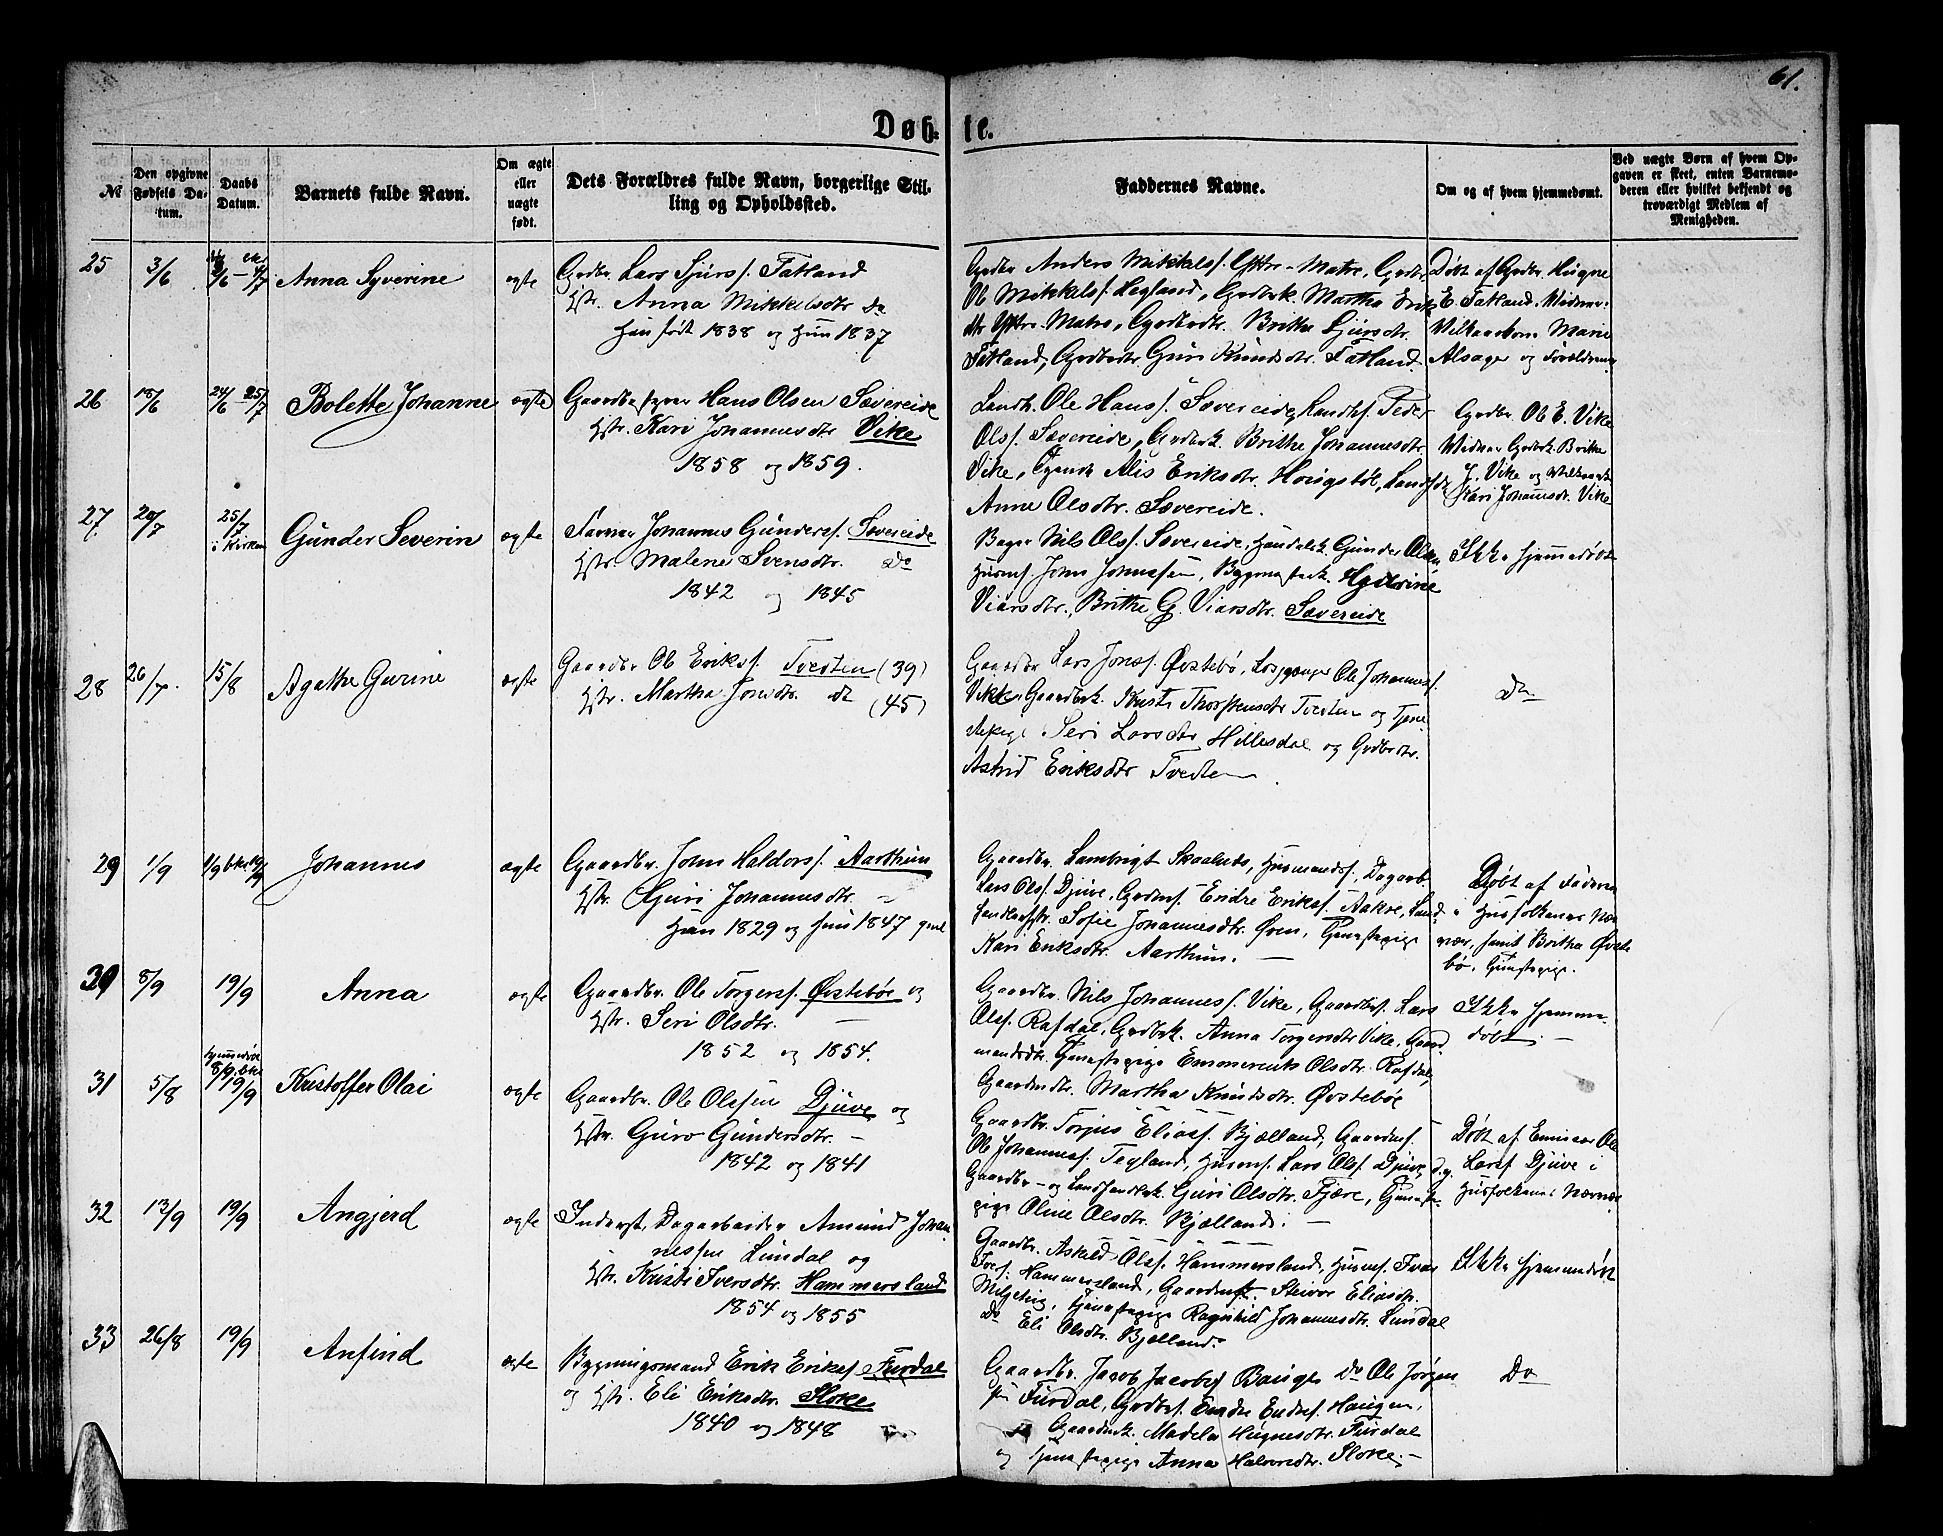 61.
Døbte.
№
Den opgivne Fødsels Datum.
Daabs Datum.
Barnets fulde Navn.
Om ægte eller uægte født.
Dets Forældres fulde Navn, borgerlige Stilling og Opholdssted.
Faddernes Navne.
Om og af hvem hjemmedøbt.
Ved uægte Børn af hvem Opgaven er skeet, enten Barnemoderen eller hvilket bekjendt og troværdigt Medlem af Menigheden.
25 3/6 Anna Syverine ægte
Grdbr. Lars Sjurs. Tatland
Hstr. Anna Mikkelsdtr do
Han født 1838 og Hun 1837
Grdbr Anders Mikkels. Yttre-Matre, Grdbr.
Ole Mikkels. Hogland, Grdbrk. Martha Eriks-
dtr Yttre-Matre, Grdbrdtr. Brithe Sjursdtr.
Tatland, Grdbrdtr Guri Knudsdtr. Tatland
Døbt af Grdbr. Hugne
E. Tatland. Vidner:
Marie
Alsager og Forældrene
26 18/6 24/6 25/7 Bolette Johanne ægte
Hans Olsen Sævereide
Hstr. Kari Johannesdtr Vike
1858 og 1859.
Landh. Ole Hans. Sævereide, Landhs. Peder
Ols. Sævereide, Grdbrk. Brithe Johannesdtr.
Vike, Alis Eriksdtr. Haugstøl,
Anne Olsdtr. Sævereide.
Grdbr. Ole E. Vike
Vidner Grdbrk. Brithe
J. Vike og
Kari Johannesdtr. Vike
27. 20/7 25/7 i Kirken Gunder Severin ægte
Farver Johannes Gunders. Sævereide
Hstr. Malene Svensdtr. do
1842 og 1845
Bager Nils Ols. Sævereide, Handelsk. Gunder Olsen,
Husms. John Johnessen,
Viarsdtr., Brithe G. Viarsdtr. Sævereide
Ikke hjemmedøbt
28 26/7. 15/8 Agathe Gurine ægte
Gaardbr Ole Eriks. Tvedten (39)
Hstr. Martha Jonsdtr. do (45)
Gaardbr Lars Jons. Øvstebø, Losjganger Ole Johannes.
Vikke, Gaardbrk. Kristi Thorstensdtr Tvedten og Tjene-
stepige Seri Larsdtr Hillesdal og Grdbrdtr.
Astrid Eriksdtr Tvedten
Do
29 1/9 Johannes ægte
Gaardbr. John Haldors. Aarthun
Hstr. Guri Johannesdtr. "
Han 1829 og Hun 1847
Gaardbr. Lambrigt Skaalnes, Husmands., Dagarb.
Lars Ols. Djuve, Grdms. Endre Eriks. Aakre, Land-
handlerdtr. Sofie Johannesdtr. Øren, Tjenestepige
Kari Eriksdtr. Aarthun.
Døbt af Faderen
i Husfolkenes Nær-
vær, samt Britha Øvste-
bø, Tjenestepige.
30 8/9 19/9 Anna ægte
Gaardbr. Ole Torgers. Øvstebøe og
Hstr. Seri Olsdtr. —
1852 og 1854.
Gaardbr. Nils Johannes. Vike, Gaardbs. Lars
Ols. Rafdal, Grdbrk. Anna Torgersdtr Vike, Gaard-
mandsdtr. Tjenestepige Emmerents Olsdtr. Rafdal,
Gaardmdtr. Martha Knudsdtr. Øvstebøe
Ikke hjemme-
døbt.
31 5/8 Hjemmedøbt 8/9. bkr. 19/9 Kristoffer Olai ægte
Gaardbr. Ole Olsen Djuve og
Hstr. Guro Gundersdtr. —
1842 og 1841
Gaardbr. Torjus Elias. Bjælland, Gaardms.
Ole Johannes. Tegland, Husms. Lars Ols. Djuve,
Gaardbr- og Landhandlerk. Guri Olsdtr. Fjære, Tjeneste-
pige Oline Olsdtr. Bjælland. —
Døbt af Emissær Ole
Lars. Djuve i
Husfolkenes Nærvær
32 12/9 19/9 Angjerd ægte
Inderst, Dagarbeider Amund Johan-
nessen Lundal og
Hstr. Kristi Iversdtr. Hammersland
1854 og 1855
Gaardbr. Askeld Ols. Hammersland, Husms. Ivar
Tors. Hammersland, Eliasdtr.
Mejeting, Tjenestepige Ragnhild Johannesdtr. Lundal
Do Eli Olsdtr. Bjælland.
Ikke hjemmedøbt
33 26/8 19/9 Anfind ægte
Bygningsmand Erik Eriks. Furdal
og Hstr. Eli Eriksdtr. Sloke
1840 og 1848
Gaardbr. Jacob Jacobs. Do Ole Jørgen-
sen Furdal, Grdbrs. Endre Endres. Haugen,
Gaardmk. Madela Hugnesdtr. Furdal
og Tjenestepige Anna Halvorsdtr. Sloke. —
Do